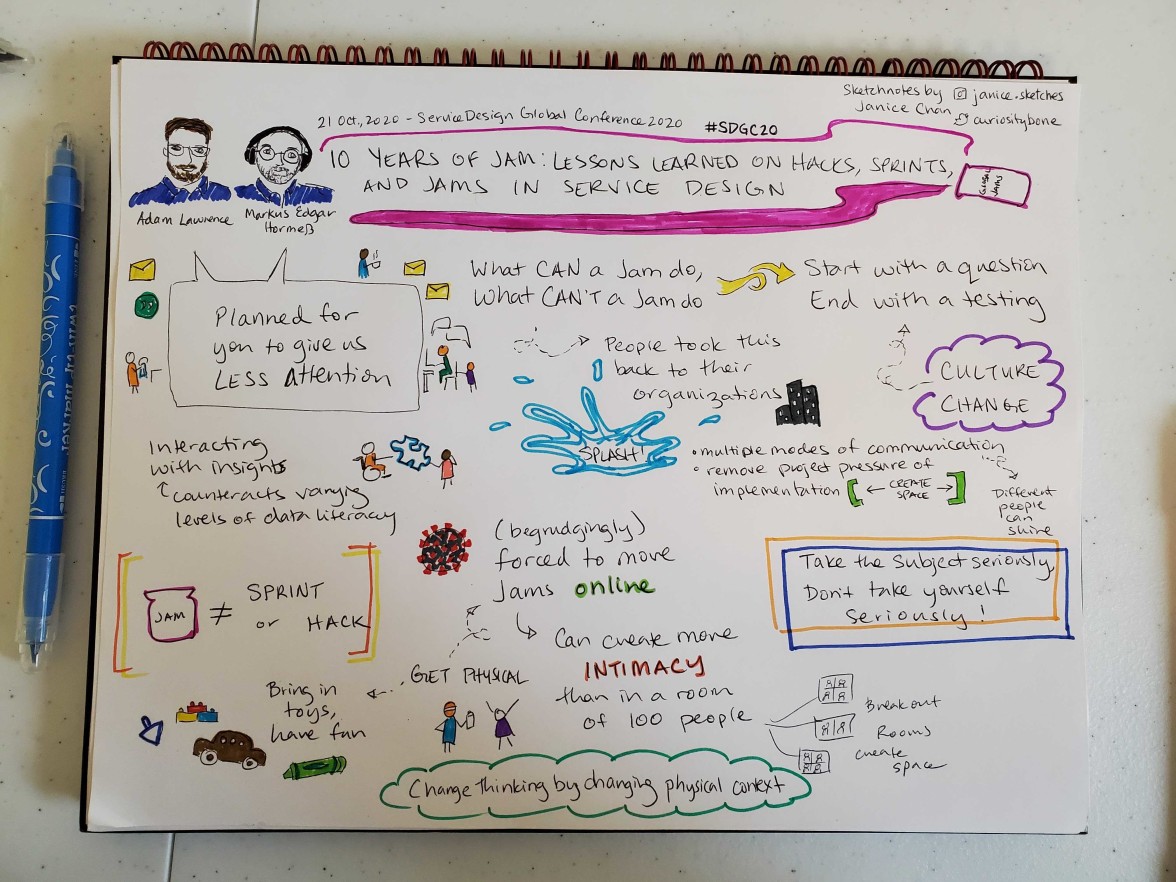 Sketchnotes by janice.sketches
Janice Chan curiositybone
21 Oct., 2020 - Service Design Global Conference 2020 #SDGC20
10 YEARS OF JAM: LESSONS LEARNED ON HACKS, SPRINTS,
AND JAMS IN SERVICE DESIGN
GLOBAL
JAMS
Adam Lawrence
Markus Edgar
Hormeß
Planned for
you to give us
LESS attention
What CAN a Jam do,
What CAN'T a Jam do
Start with a question
End with a testing
People took this
back to their
organizations
CULTURE
CHANGE
SPLASH!
Interacting
with insights
counteracts varying
levels of data literacy
• multiple modes of communication
• remove project pressure of
implementation
← CREATE →
SPACE
Different
people
can
shine
JAM ≠ SPRINT
or HACK
(begrudgingly)
forced to move
Jams online
Can create more
INTIMACY
than in a room
of 100 people
Take the Subject seriously,
Don't take yourself
seriously!
GET PHYSICAL
Bring in
toys,
have fun
Breakout
Rooms
create
space
Change thinking by changing physical context